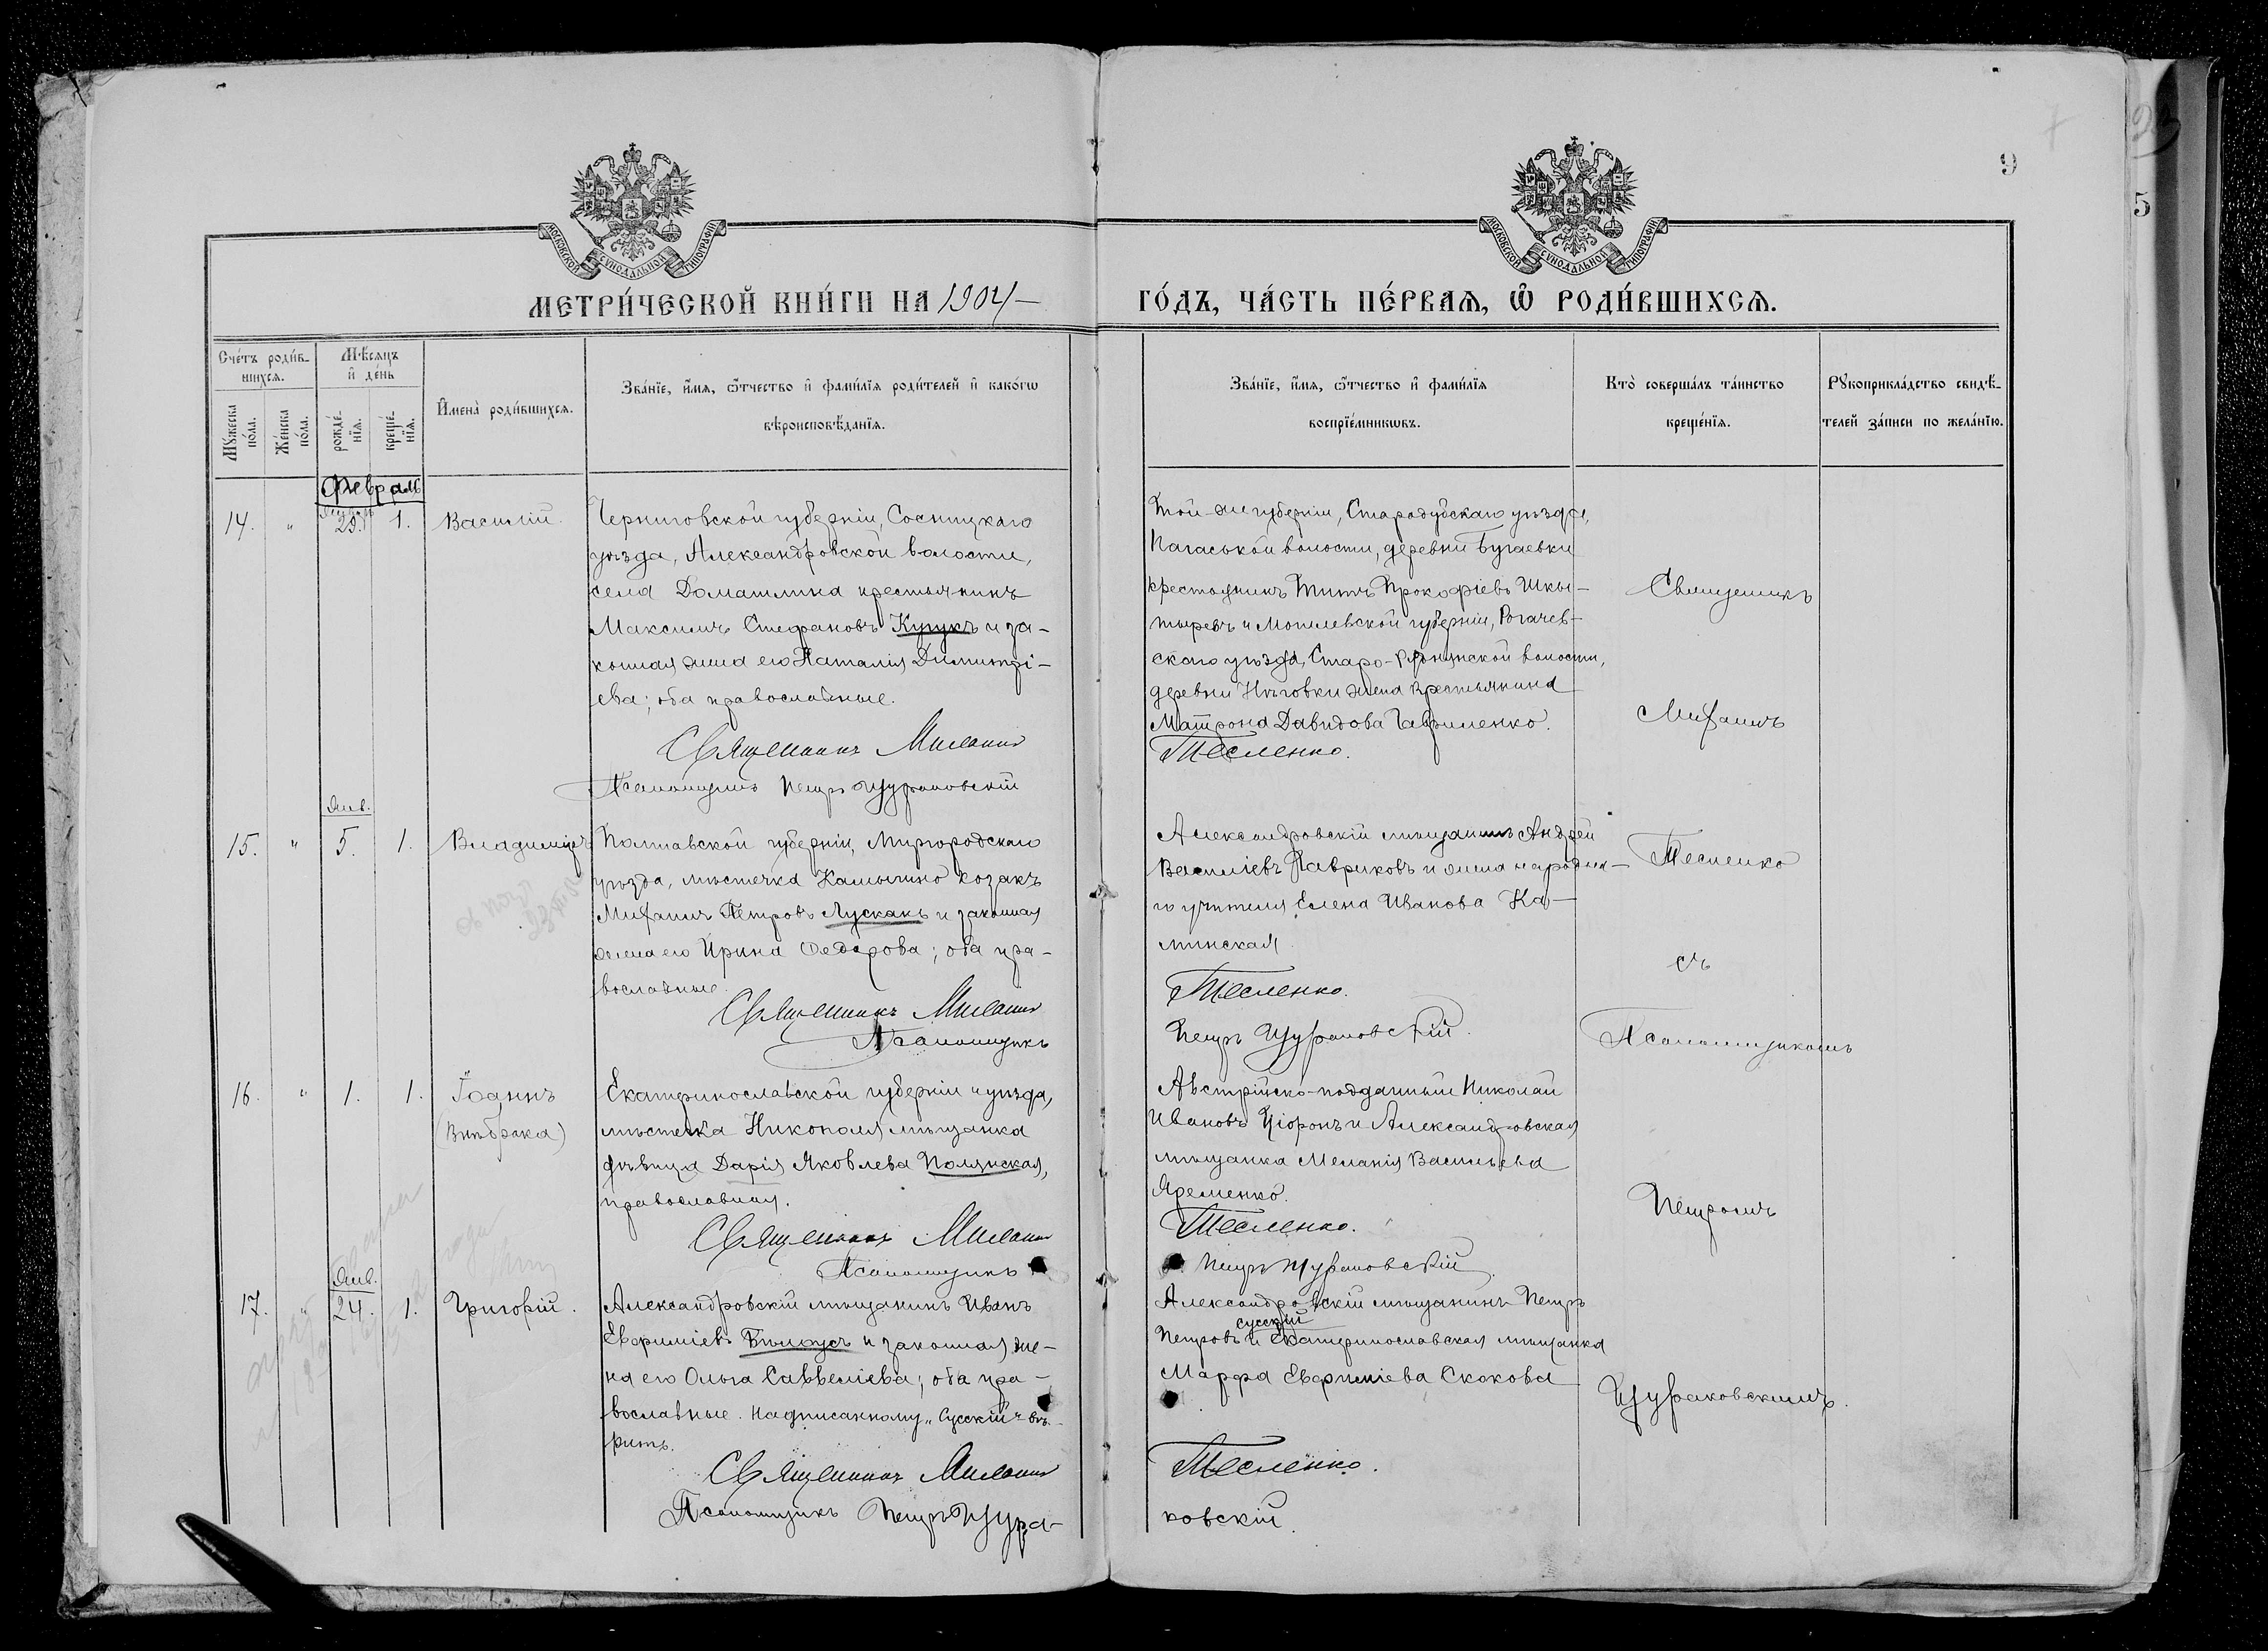 9
5
МОСКОВСКОЙ СУНОДАЛЬНОЙ ТИПОГРАФІИ
МОСКОВСКОЙ СУНОДАЛЬНОЙ ТИПОГРАФІИ
МЕТРИ́ЧЕСКОЙ КНИ́ГИ НА 1904
ГО́ДЪ, ЧА́СТЬ ПЕ́РВАѦ, Ѽ РОДИ́ВШИХСѦ.
Сче́тъ роди́в-
шихсѧ.
Мꙋжеска по́ла.
Же́нска по́ла.
Мѣ́сѧцъ и҆ де́нь
рожде́-
нїѧ.
креще́-
нїѧ.
И҆мена̀ роди́вшихсѧ.
Зва́нїе, и҆́мѧ, ѻ҆́тчество и҆ фами́лїѧ роди́телей и҆ како́гѡ
вѣроисповѣ́данїѧ.
Зва́нїе, и҆́мѧ, ѻ҆́тчество и҆ фами́лїѧ
воспрїе́мникѡвъ.
Кто̀ соверша́лъ та́инство
креще́нїѧ.
Рꙋкоприкла́дство свидѣ́-
телей за́писи по жела́нїю.
Февраль
14. " 29. 1. Василій.
Черниговской губерніи, Сосницкаго
уѣзда, Александровской волости,
села Домашлина крестьянинъ
Максимъ Стефановъ Куцукъ и за-
конная жена его Наталія Димитрі-
ева; оба православные.
Священникъ Михаилъ
Псаломщикъ Петръ Щураковскій
Той-же губерніи, Стародубскаго уѣзда,
волости, деревни Бугаевки
крестьянинъ Титъ Прокофіевъ Шкы-
тыревъ и Могилевской губерніи, Рогачев-
скаго уѣзда, Старо- волости,
деревни жена крестьянина
Матрона Давидова Гавриленко.
Тесленко.
Священникъ
Михаилъ
Тесленко
съ
Псаломщикомъ
Петромъ
Щураковскимъ.
Янв.
15. " 5. 1. Владиміръ
Полтавской губерніи, Миргородскаго
уѣзда, мѣстечка Камышно козакъ
Михаилъ Петровъ Лускань и законная
жена его Ирина Федорова; оба пра-
вославные.
Священникъ Михаилъ
Псаломщикъ
Александровскій мѣщанинъ Андрей
Василіевъ Лавриковъ и жена народна-
го учителя Елена Иванова Ка-
минская.
Тесленко.
Петръ Щураковскій.
16. " 1. 1. Іоаннъ
(Внѣбрака)
Екатеринославской губерніи и уѣзда,
мѣстечка Никополя мѣщанка
дѣвица Дарія Яковлева Полянская,
православная.
Священникъ Михаилъ
Псаломщикъ
Австрійско-подданный Николай
Ивановъ Ціоронъ и Александровская
мѣщанка Меланія Васильева
Яременко.
Тесленко.
Петръ Щураковскій.
Янв.
17. " 24. 1. Григорій.
Александровскій мѣщанинъ Иванъ
Евфиміевъ Бѣлоусъ и законная же-
на его Ольга Саввеліева; оба пра-
вославные. Надписанному „Сусскій" вѣ-
рить.
Священникъ Михаилъ
Псаломщикъ Петръ Щура-
Александровскій мѣщанинъ Петръ
Сусскій
Петровъ и Екатеринославская мѣщанка
Марфа Евфиміева Скокова
Тесленко.
ковскій.